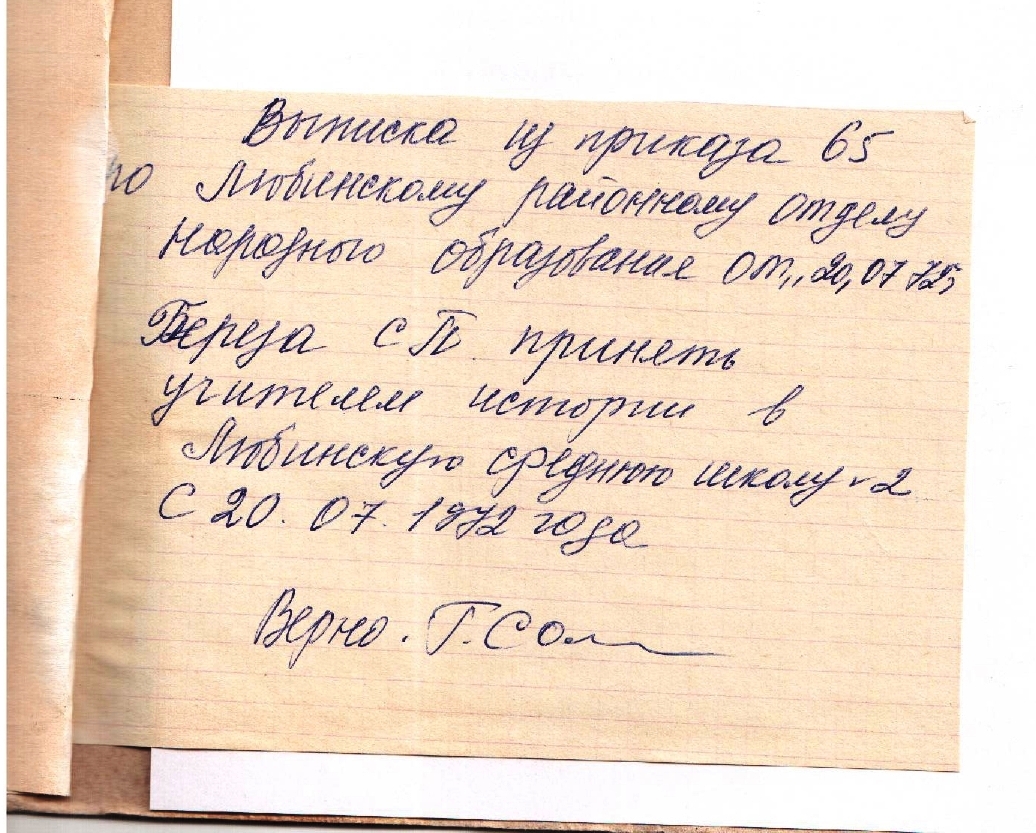 Выписка из приказа 65
по Любинскому районному отделу
народного образования от „20„ 07 72г
Береза С П. принять
учителем истории в
Любинскую среднюю школу №2
С 20. 07. 1972 года
Верно. Г. Сол